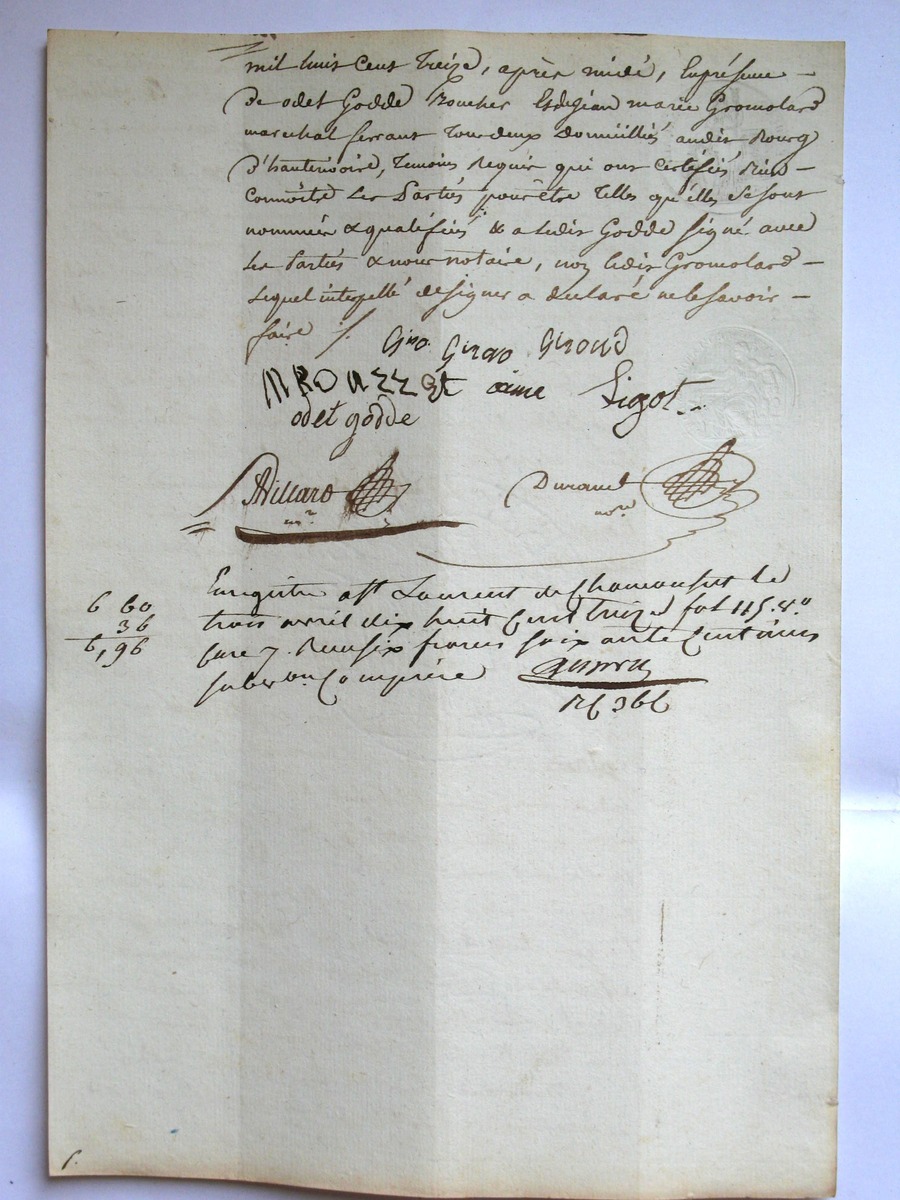 mil huit cent treize, après midi, En présence
de odet Godde Boucher Et de Jean marie Gromolard
marechal ferrant tous deux domiciliés audit Bourg
d'hauterivoire, temoins requis qui ont certifiés Bien
connoitre les Parties pour être telles qu'elles se sont
nommées & qualifiées & a ledit Godde signé avec
les Parties & nous notaire, non ledit Gromolard
lequel interpellé de signer a declaré ne le savoir
faire ./.
Giro Girao Giroud
aime Ligot
odet godde
Villard Durand
nre nore
Enregistré a St Laurent de Chamousset le
trois avril dix huit cent treize fol 115. v.o
case 7. Reçu six francs soixante centimes
subvon. Comprise
6 60
36
6,96